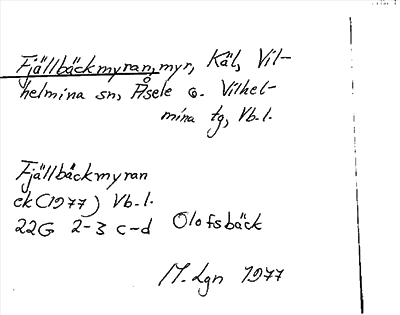 Fjällbäckmyran, myr, Käl, Vil-
helmina sn, Åsele o. Vilhel-
mina tg, Vb.l.
Fjällbäckmyran
ek (1977) Vb.l.
22G 2-3 c-d Olofsbäck
M. Lgn 1977